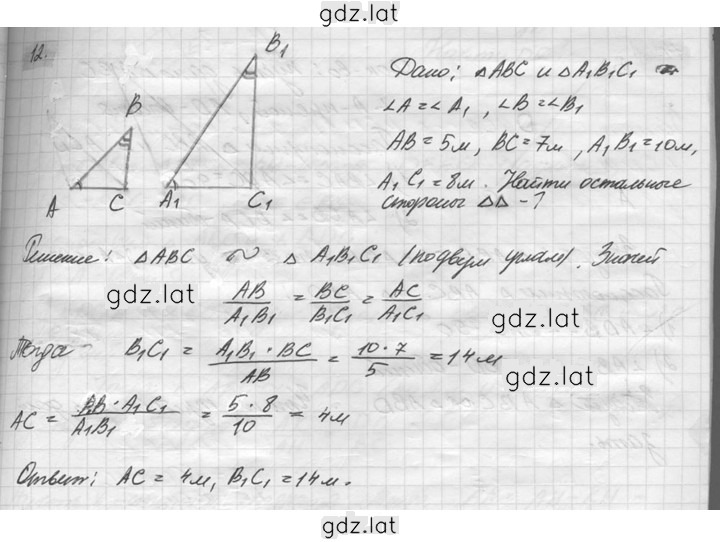 gdz.lat
12.
B1
B
A C A1 C1
Дано: △ABC и △A1B1C1
∠A=∠A1, ∠B=∠B1
AB=5м, BC=7м, A1B1=10м,
A1C1=8м. Найти остальные
стороны △△-?
Решение: △ABC ∼ △A1B1C1 (по двум углам). Значит
gdz.lat
AB/A1B1 = BC/B1C1 = AC/A1C1
gdz.lat
Тогда B1C1 = A1B1·BC/AB = 10·7/5 = 14м
gdz.lat
AC = AB·A1C1/A1B1 = 5·8/10 = 4м
Ответ: AC = 4м, B1C1=14м.
gdz.lat